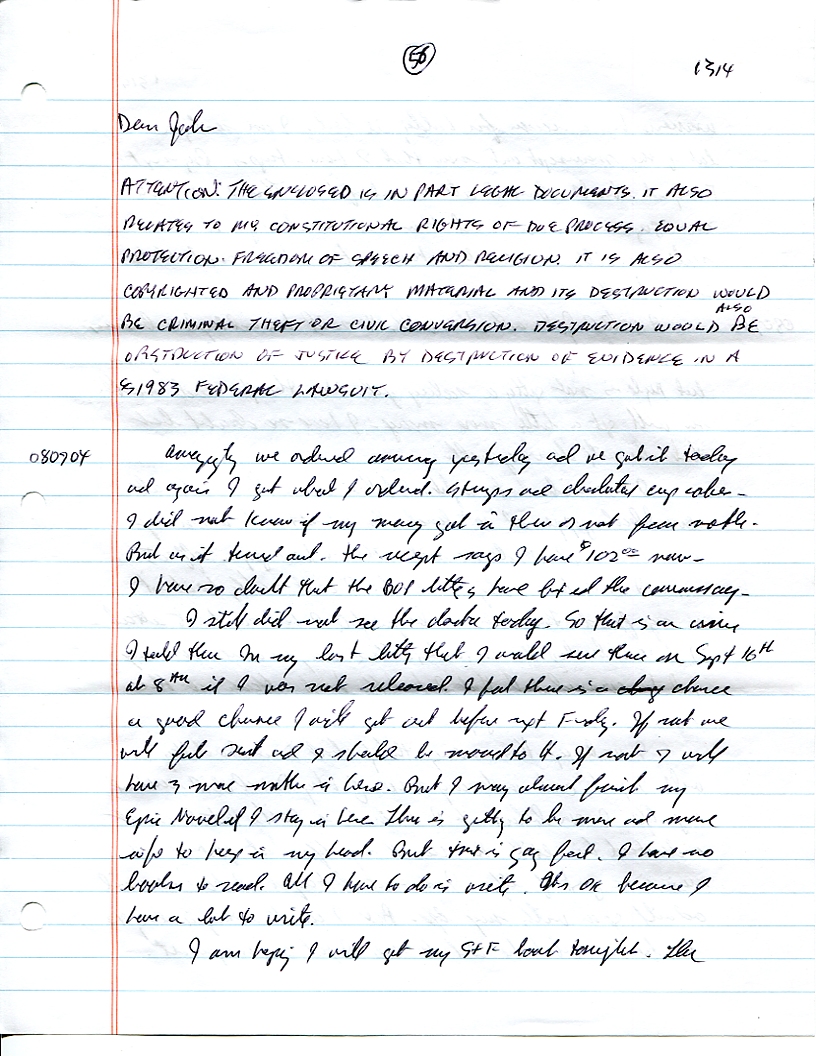 56
1314
Dear Jack
ATTENTION: THE ENCLOSED IS IN PART LEGAL DOCUMENTS. IT ALSO
RELATES TO MY CONSTITUTIONAL RIGHTS OF DUE PROCESS. EQUAL
PROTECTION. FREEDOM OF SPEECH AND RELIGION. IT IS ALSO
COPYRIGHTED AND PROPRIETARY MATERIAL AND ITS DESTRUCTION WOULD
ALSO
BE CRIMINAL THEFT OR CIVIL CONVERSION. DESTRUCTION WOULD BE
OBSTRUCTION OF JUSTICE BY DESTRUCTION OF EVIDENCE IN A
§1983 FEDERAL LAWSUIT.
080904
we ordered yesterday and we got it today
and again I got what I ordered. Stamps and chocolate cup cakes -
I did not know if my money got in there or not from
But as it turned out. The receipt says I have $102.00 now -
I have no doubt that the BOP have the commissary -
I still did not see the doctor today. So that is an issue
I told them in my last letter that I would see them on Sept 16th
at 8AM if I was not released. I feel there is a chance
a good chance I will get out before next Friday. If not we
will and I should be moved to H. If not I will
have 3 more months in here. But I may almost finish my
Epic Novel if I stay in here. There is getting to be more and more
info to keep in my head. But that is I have no
books to read. All I have to do is write. OK because I
have a lot to write.
I am hoping I will get my back tonight. The